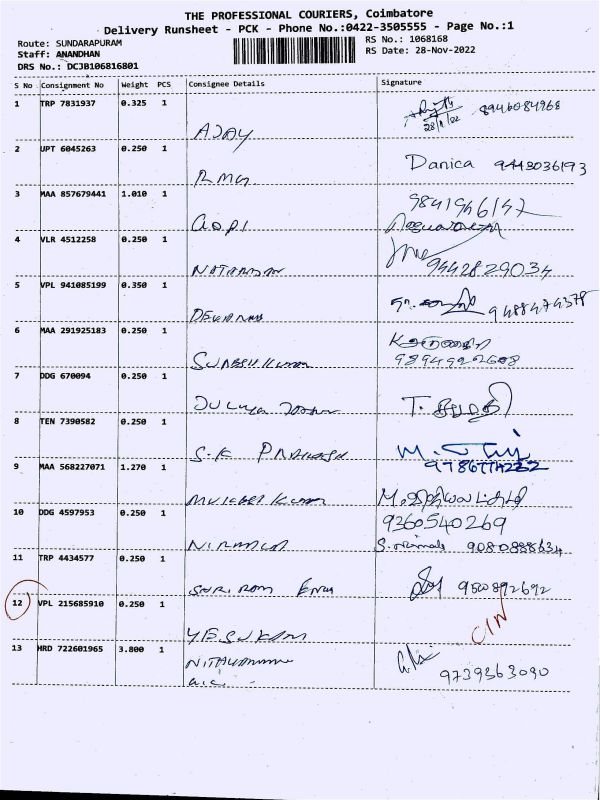 THE PROFESSIONAL COURIERS, Coimbatore
Delivery Runsheet - PCK - Phone No.:0422-3505555 - Page No.:1
Route: SUNDARAPURAM
RS No.: 1068168
Staff: ANANDHAN
RS Date: 28-Nov-2022
DRS No.: DCJB106816801
S No Consignment No Weight PCS Consignee Details Signature
1 TRP 7831937 0.325 1
28/11/22 8946084968
AJAY
2 UPT 6045263 0.250 1
Danica 9443036193
RMG
3 MAA 857679441 1.010 1
9841946147
GOPI
4 VLR 4512258 0.250 1
9442829034
NATARAJAN
5 VPL 941085199 0.350 1
9488474378
6 MAA 291925183 0.250 1
9894922608
SURESH KUMAR
7 DDG 670094 0.250 1
8 TEN 7390582 0.250 1
S.K PRAKASH
9786774222
9 MAA 568227071 1.270 1
10 DDG 4597953 0.250 1
9360540269
NIRMALA
9080888634
11 TRP 4434577 0.250 1
SRI RAM ENGG
12 VPL 215685910 0.250 1
YESU RAM
13 HRD 722601965 3.800 1
9739363090